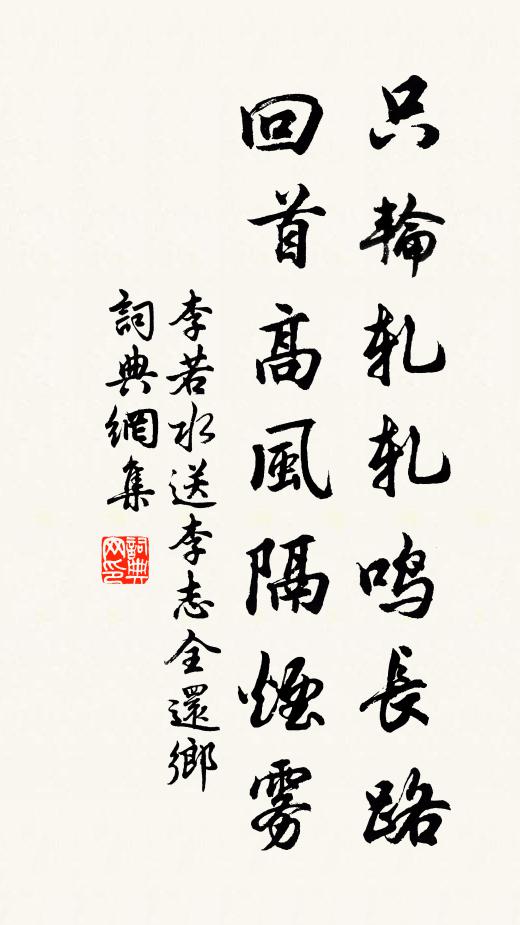 只輪軋軋鳴長路
回首高風隔煙霧
李若水送李志全還鄉
詞典網集
詞典網印